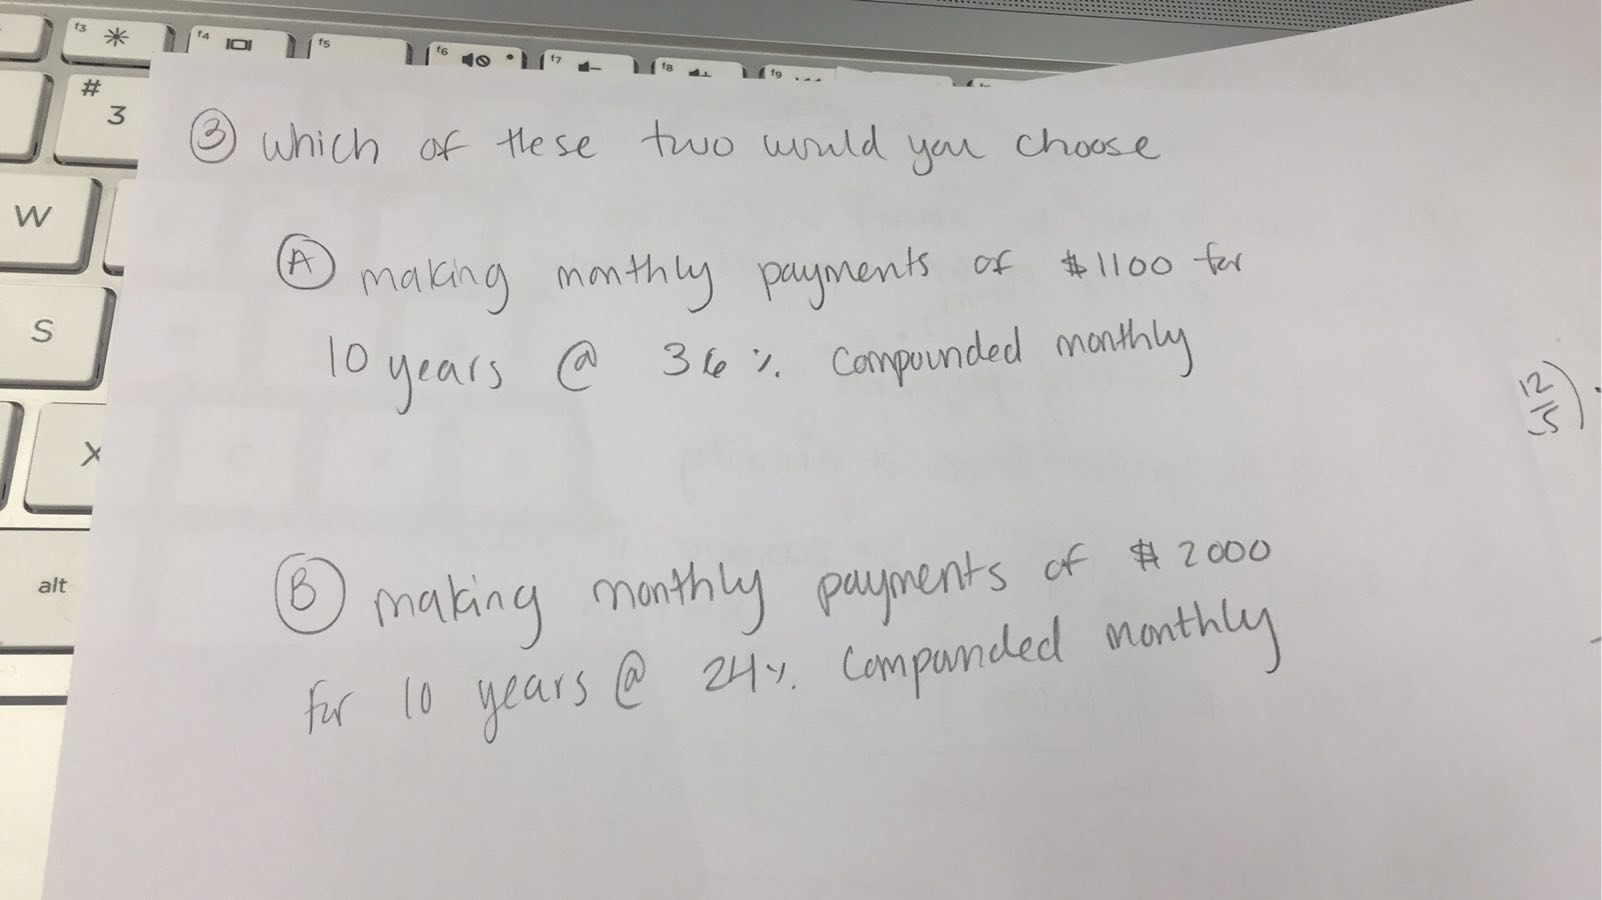 f3
f4
f5
f6
f7
f8
f9
#
3
W
S
X
alt
③ which of these two would you choose
Ⓐ making monthly payments of $1100 for
10 years @ 36 %. compounded monthly
12
5
Ⓑ making monthly payments of $2000
for 10 years @ 24%. Compounded monthly